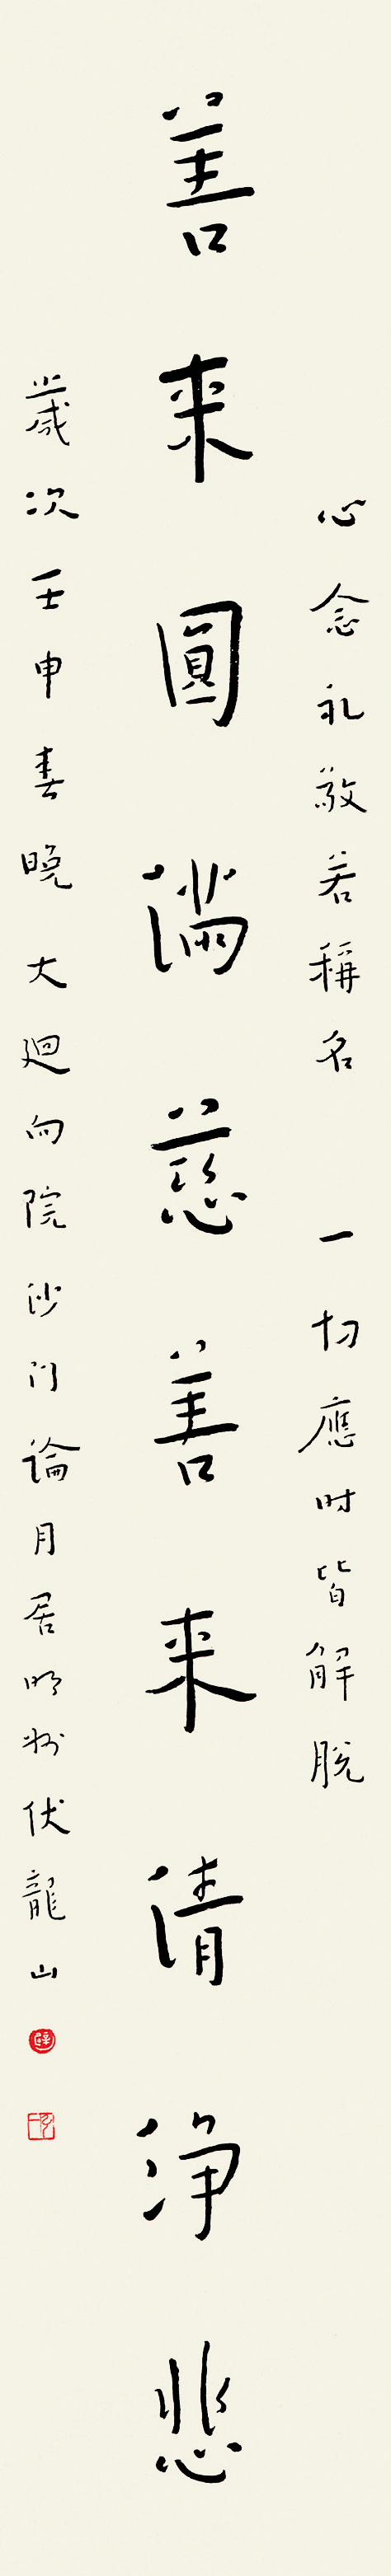 心念礼敬若稱名 一切應时皆解脱
善来圓満慈善来清浄悲
歲次壬申春晚大迴向院沙门論月居明州伏龍山